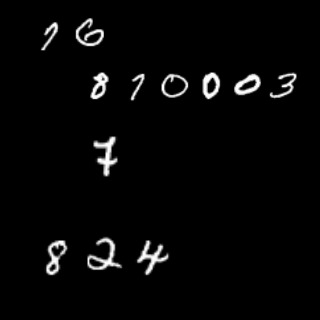 16
810003
7
824